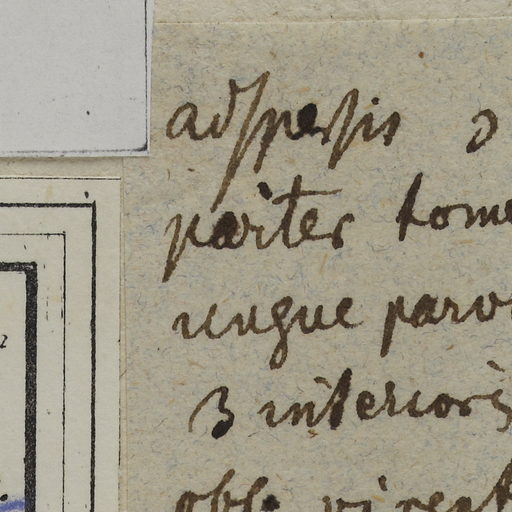 adſperſis
pariter tome
ungue parvo
3 interioris